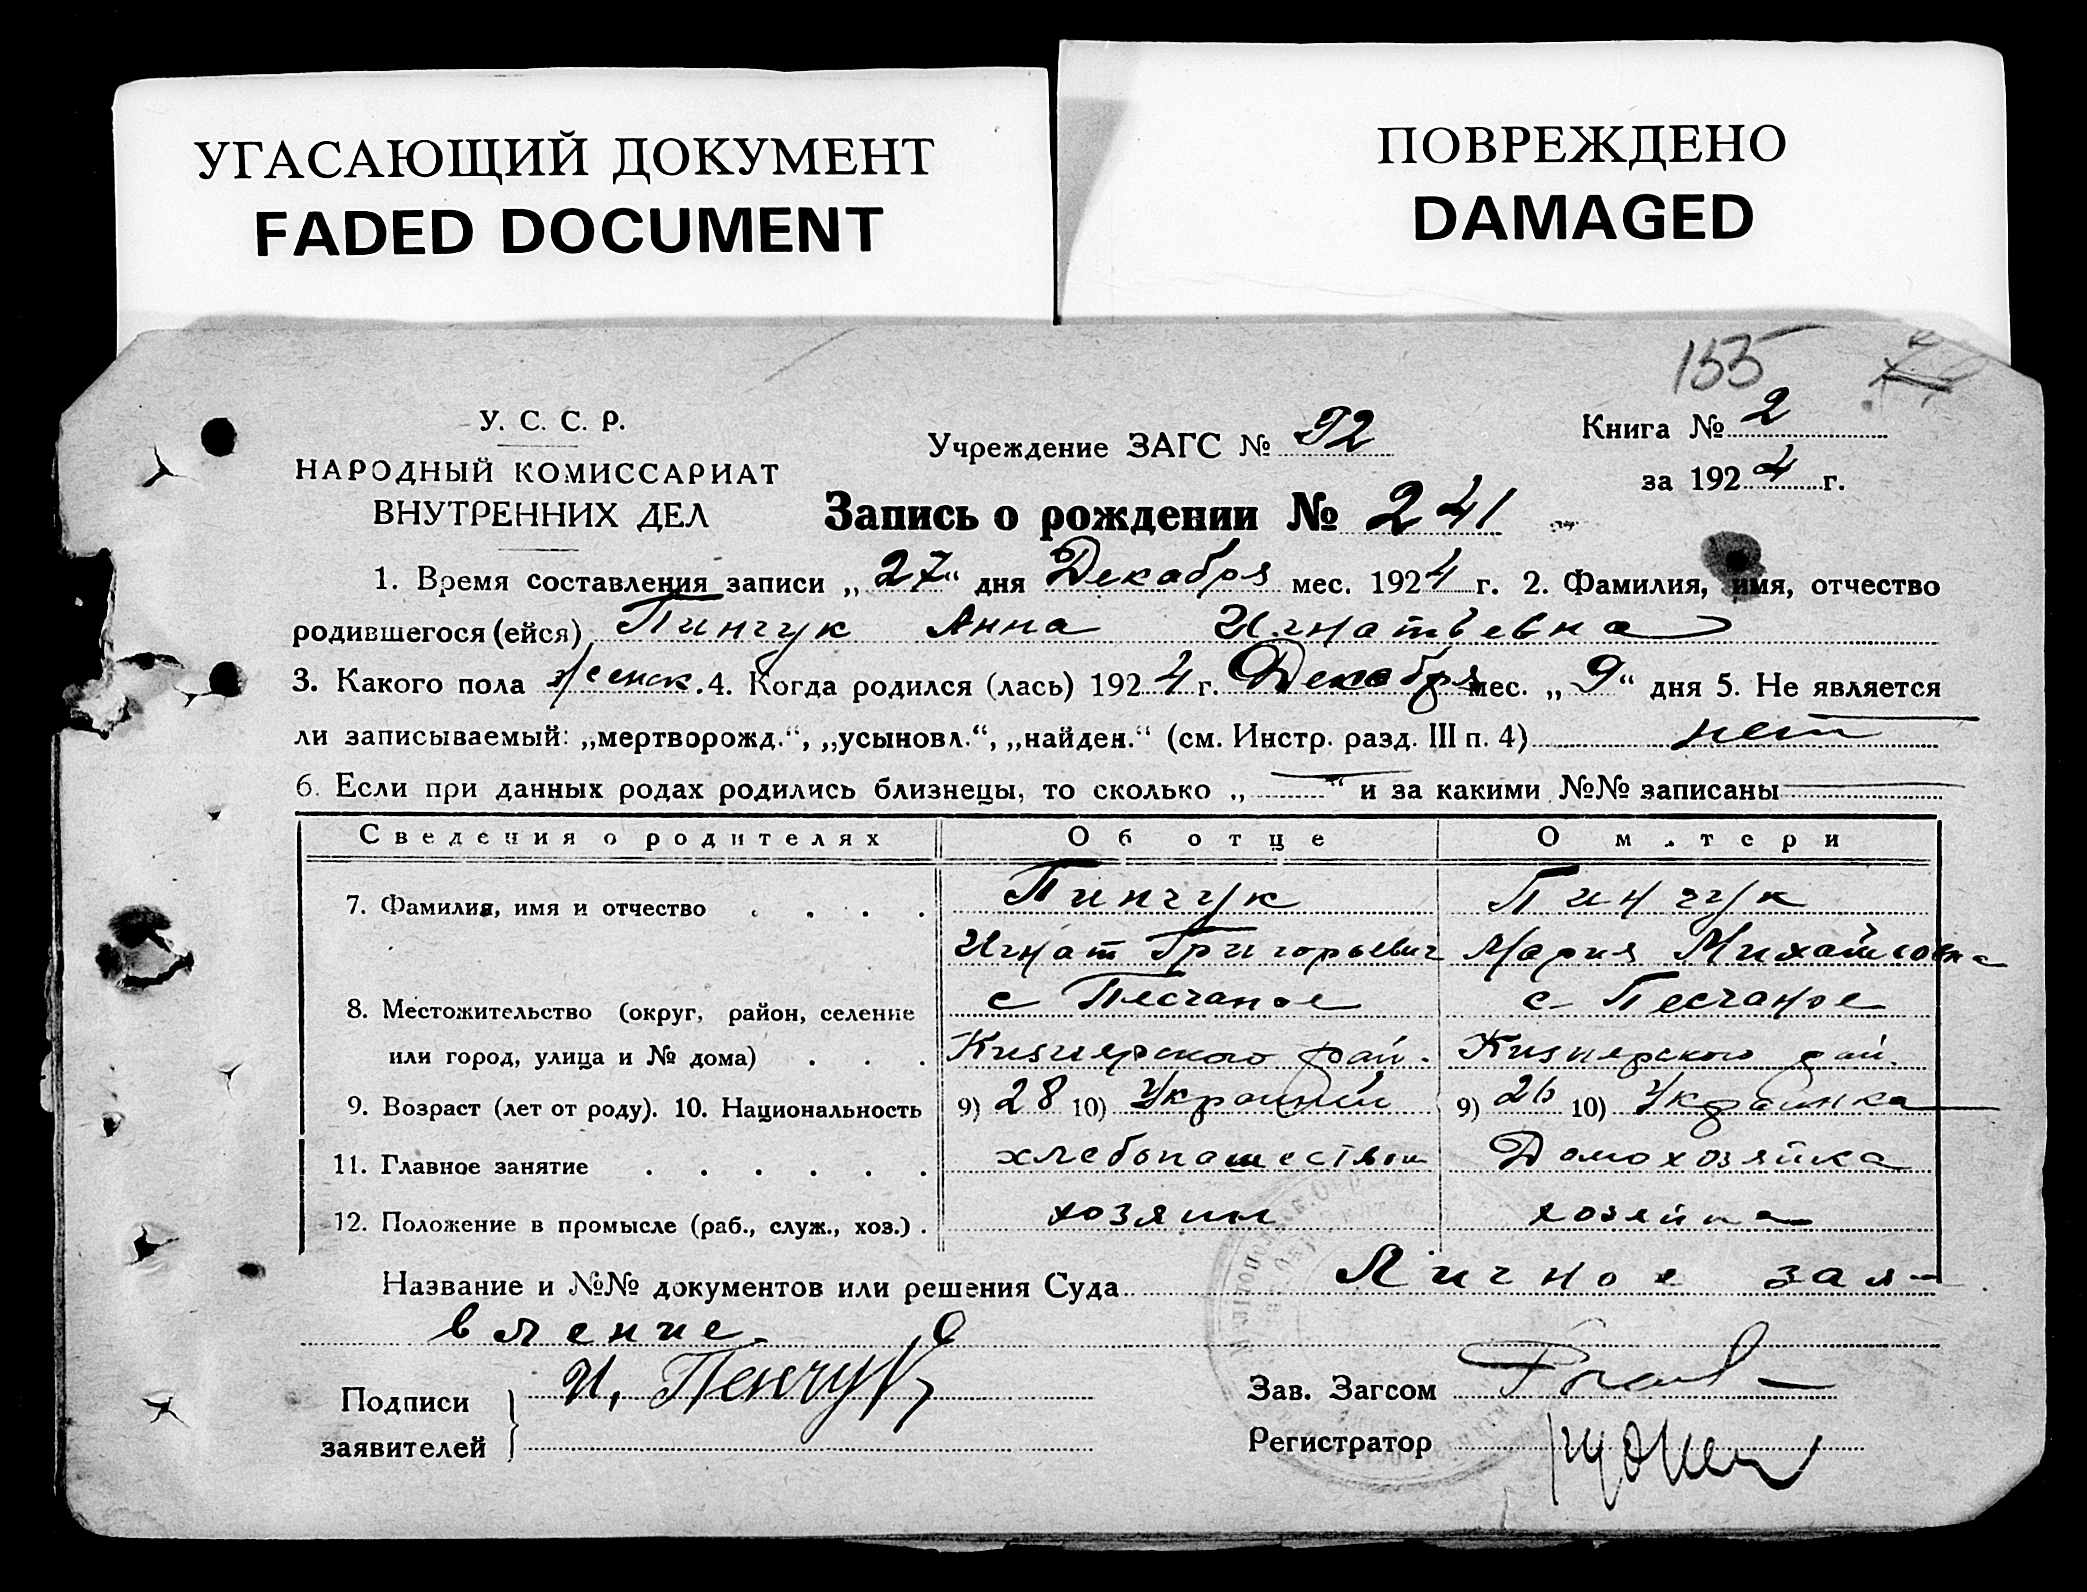 УГАСАЮЩИЙ ДОКУМЕНТ
FADED DOCUMENT
ПОВРЕЖДЕНО
DAMAGED
155
У. С. С. Р.
НАРОДНЫЙ КОМИССАРИАТ
ВНУТРЕННИХ ДЕЛ
Учреждение ЗАГС №
Книга № 2
за 1924 г.
Запись о рождении № 241
1. Время составления записи „27“ дня Декабря мес. 1924 г. 2. Фамилия, имя, отчество
родившегося (ейся) Пинчук Анна Игнатьевна
3. Какого пола женск. 4. Когда родился (лась) 1924 г. Декабря мес. „9“ дня 5. Не является
ли записываемый: „мертворожд.“, „усыновл.“, „найден.“ (см. Инстр. разд. III п. 4) нет
6. Если при данных родах родились близнецы, то сколько „—“ и за какими №№ записаны —
Сведения о родителях Об отце О матери
7. Фамилия, имя и отчество . . . . Пинчук Пинчук
Игнат Григорьевич Мария Михайловна
8. Местожительство (округ, район, селение с Песчаное с Песчаное
или город, улица и № дома) . . . Кизиярского рай. Кизиярского рай.
9. Возраст (лет от роду). 10. Национальность 9) 28 10) Украинец 9) 26 10) Украинка
11. Главное занятие . . . . . . хлебопашеством Домохозяйка
12. Положение в промысле (раб., служ., хоз.) . хозяин хозяйка
Название и №№ документов или решения Суда Личное зая-
вление.
Подписи И. Пенчук
заявителей
Зав. Загсом
Регистратор